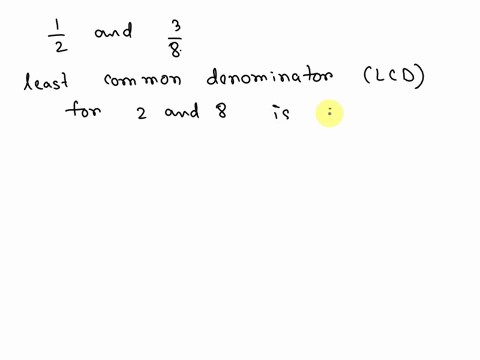 1/2 and 3/8
least common denominator (LCD)
for 2 and 8 is